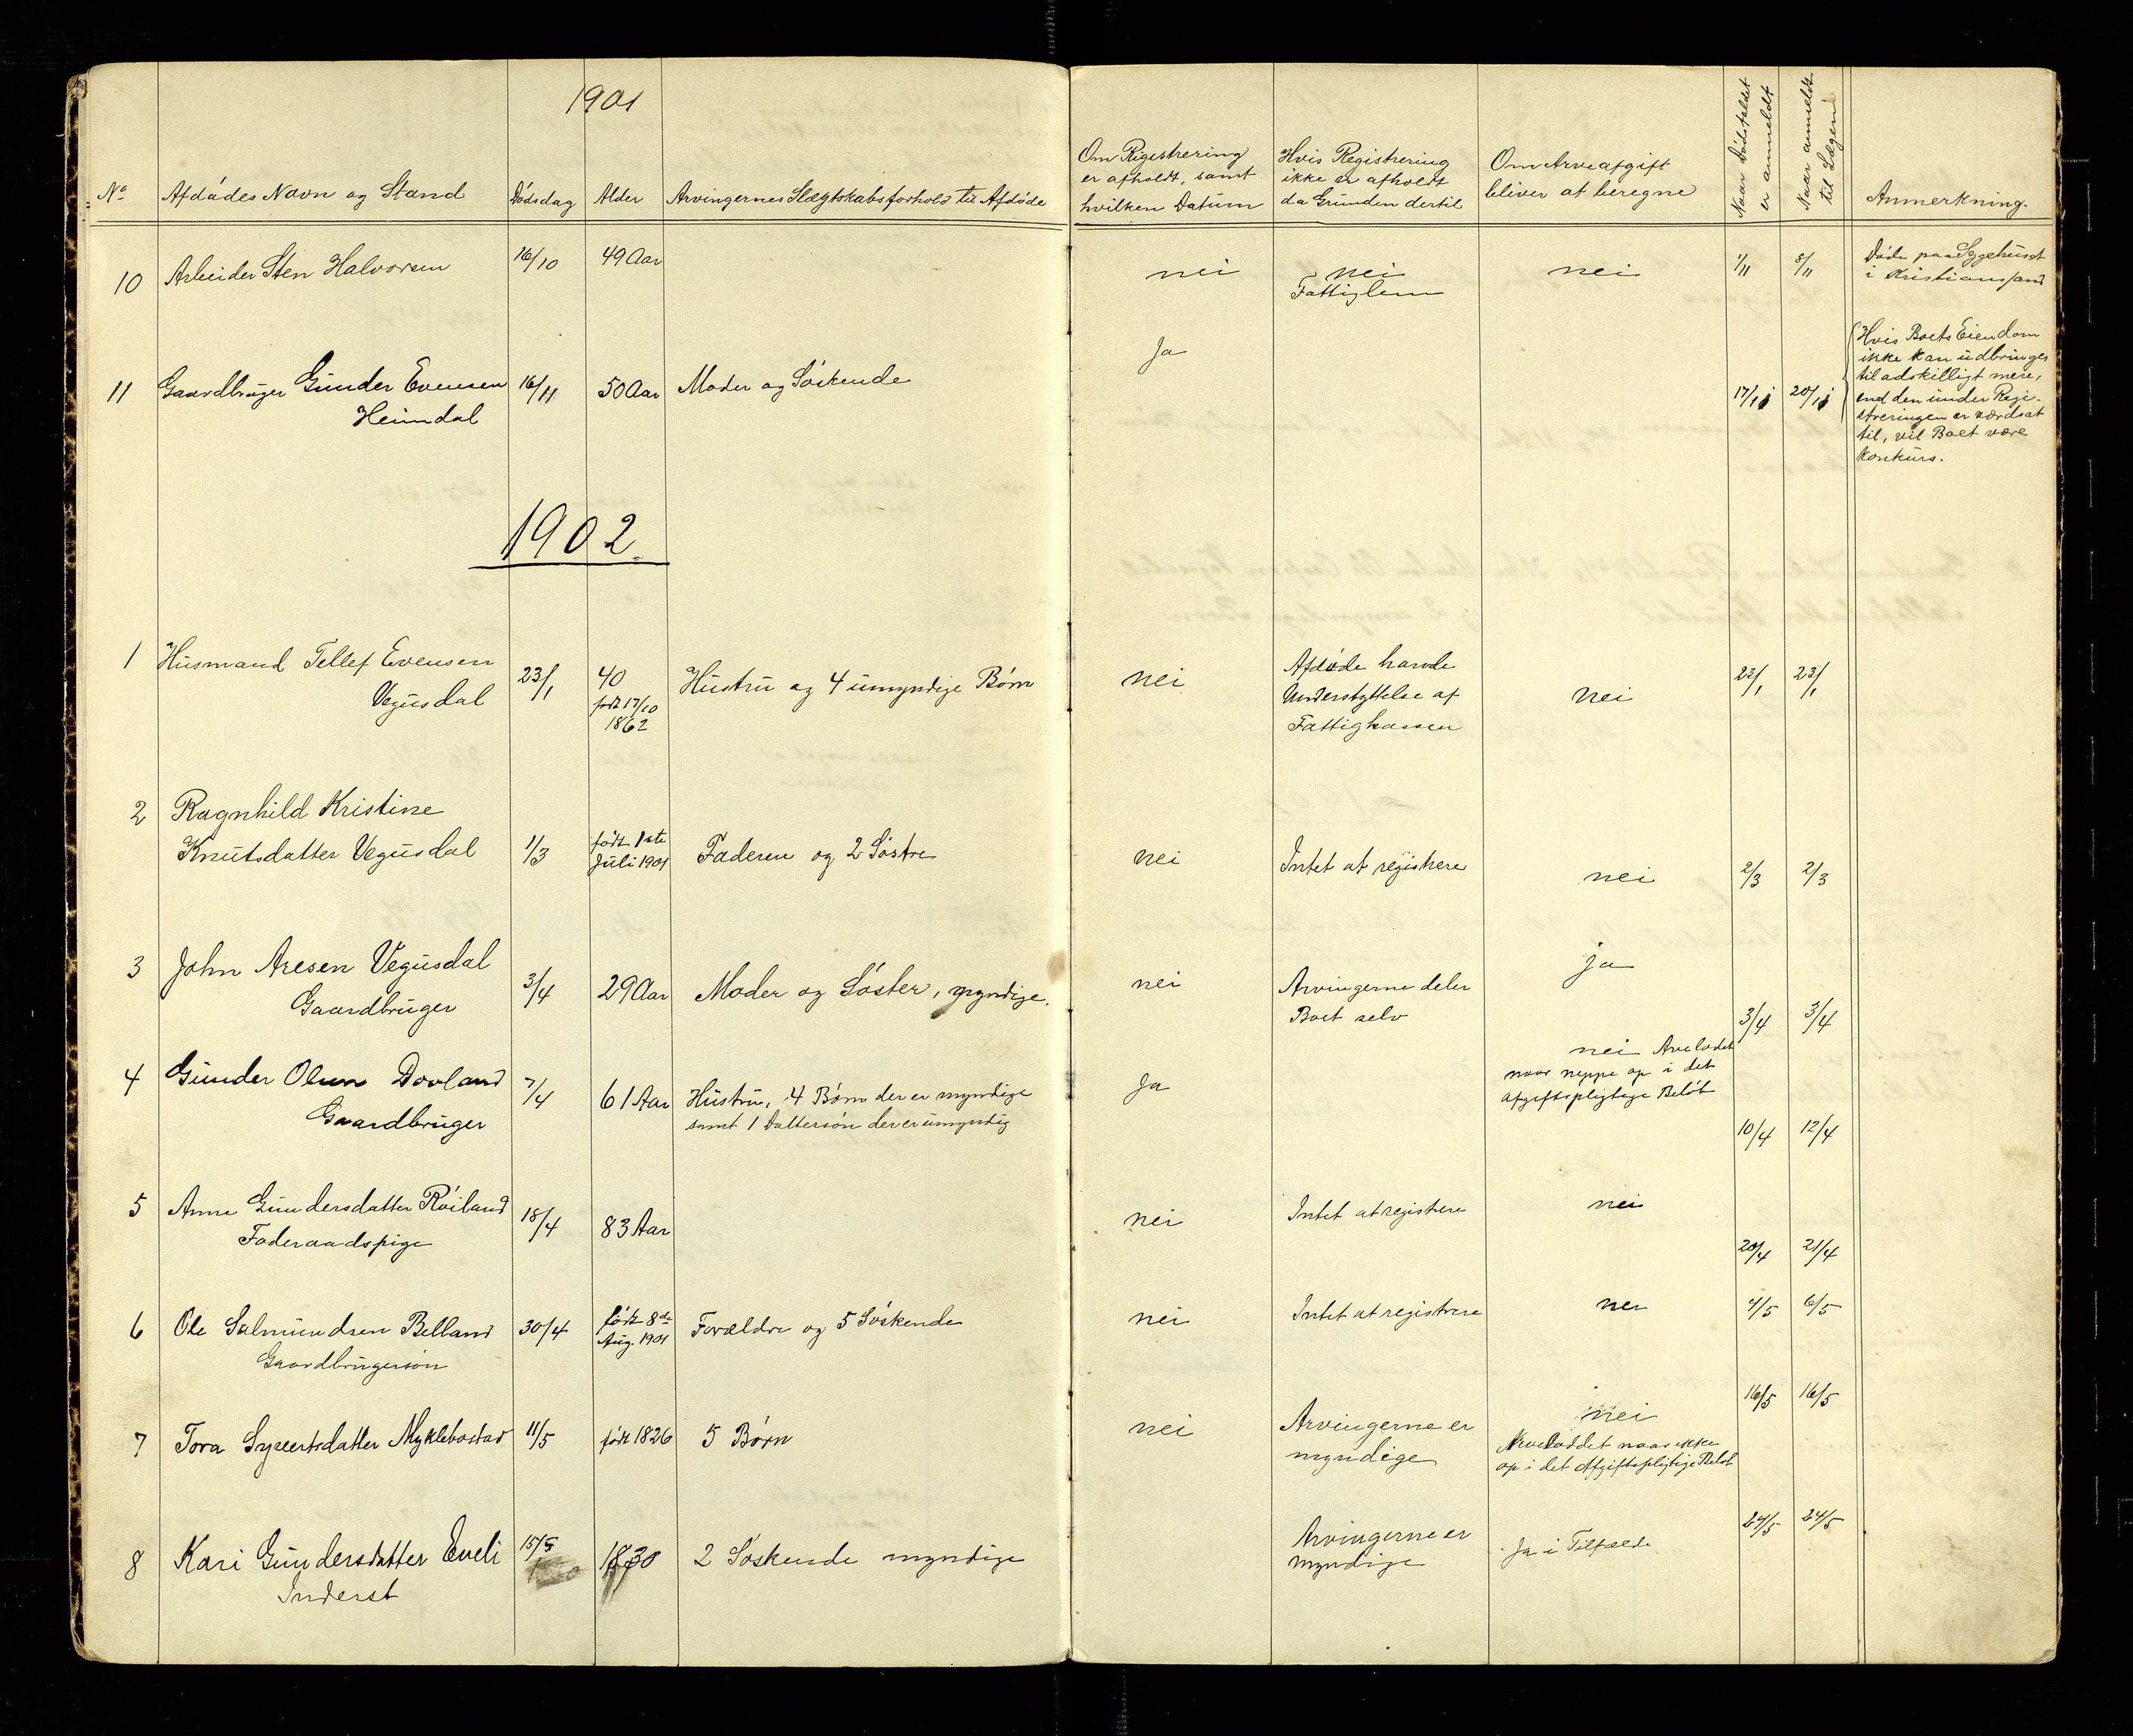 1901
No Afdødes Navn og Stand Dødsdag Alder Arvingernes Slægtskabsforhold til Afdøde
Om Rigistrering er afholdt, samt hvilken Datum
Hvis Registrering ikke er afholdt da Grunden dertil
Om Arveafgift bliver at beregne
Naar Dødsfaldet er anmeldt
Naar anmeldt til Lægen
Anmerkning.
10 Arbeider Sten Halvorsen 16/10 49 Aar nei nei nei 1/11 8/11 Døde paa Sygehuset
Fattiglem i Kristianssand
11 Gaardbruger Gunder Evensen 16/11 50 Aar Moder og Søskende Ja 17/11 20/11
Heimdal
Hvis Boets Eiendom
ikke kan udbringes
til adskilligt mere,
end den under Regi-
streringen er værdsat
til, vil Boet være
Konkurs.
1902.
1 Husmand Tellef Evensen 23/1 40 Hustru og 4 umyndige Børn nei Afdøde havde nei 23/1 23/1
Vegusdal født 17/10 Understyttelse af
1862 Fattigkassen
2 Ragnhild Kristine
Knutsdatter Vegusdal 1/3 født 1ste Faderen og 2 Søstre nei Intet at registrere nei 2/3 2/3
Juli 1901
3 John Aresen Vegusdal 3/4 29 Aar Moder og Søster, myndige. nei Arvingerne deler ja 3/4 3/4
Gaardbruger Boet selv
4 Gunder Olsen Dovland 7/4 61 Aar Hustru, 4 Børn der er myndige Ja nei Arvelodet 10/4 12/4
Gaardbruger samt 1 Dattersøn der er umyndig naar neppe op i det
afgiftspligtige Beløb
5 Anne Gundersdatter Røiland 18/4 83 Aar nei Intet at registrere nei 20/4 21/4
Foderaadspige
6 Ole Salmundsen Belland 30/4 født 8de Forældre og 5 Søskende nei Intet at registrere nei 4/5 6/5
Gaardbrugersøn Aug. 1901
7 Tora Syvertsdatter Myklebostad 11/5 født 1826 5 Børn nei Arvingerne er nei 16/5 16/5
myndige Arveloddet naar ikke
op i det Afgiftspligtige Beløb
8 Kari Gundersdatter Eveli 15/5 1830 2 Søskende myndige Arvingerne er Ja i Tilfælde 24/5 24/5
Inderst myndige